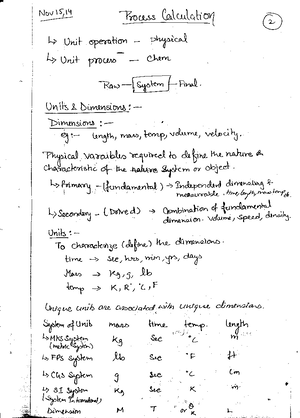 Nov 15,19
Process Calculation
2
↳ Unit operation – physical
↳ Unit process – Chem
Raw – System – Final.
Units & Dimensions :-
Dimensions :-
eg:- length, mass, temp, volume, velocity.
Physical variables required to define the nature &
characteristic of the nature system or object.
↳ Primary - (fundamental) → Independent dimensions &
measurable. time, length, mass, temp
↳ Secondary - (Derived) → Combination of fundamental
dimension. volume, speed, density.
Units :-
To characterize (define) the dimensions.
time → sec, hrs, min, yrs, days
Mass → Kg, g, lb
temp → K, R°, °C, °F
Unique units are associated with unique dimensions.
System of Unit mass time temp. length
↳ MKS System Kg Sec °C m
(metric system)
↳ FPS System lbs Sec °F ft
↳ CGS System g Sec °C cm
↳ SI System Kg Sec K m
(System International)
Dimension M T θ or K L